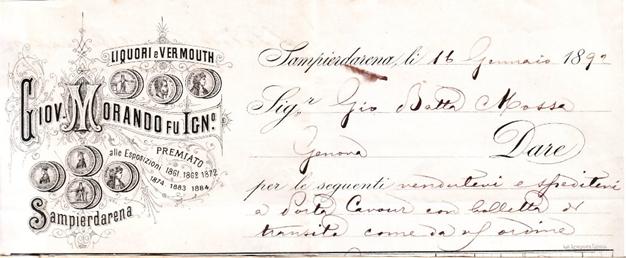 LIQUORI e VERMOUTH
GIOV. MORANDO FU IGNº.
PREMIATO
alle Esposizioni 1861 1868 1872
1874 1883 1884
Sampierdarena
Sampierdarena, li 16 Gennaio 1892
Sigr. Gio Batta Mossa
Genova
Dare
per le seguenti vendutevi e speditevi
a Porta Cavour con bolletta di
transito come da vs. ordine